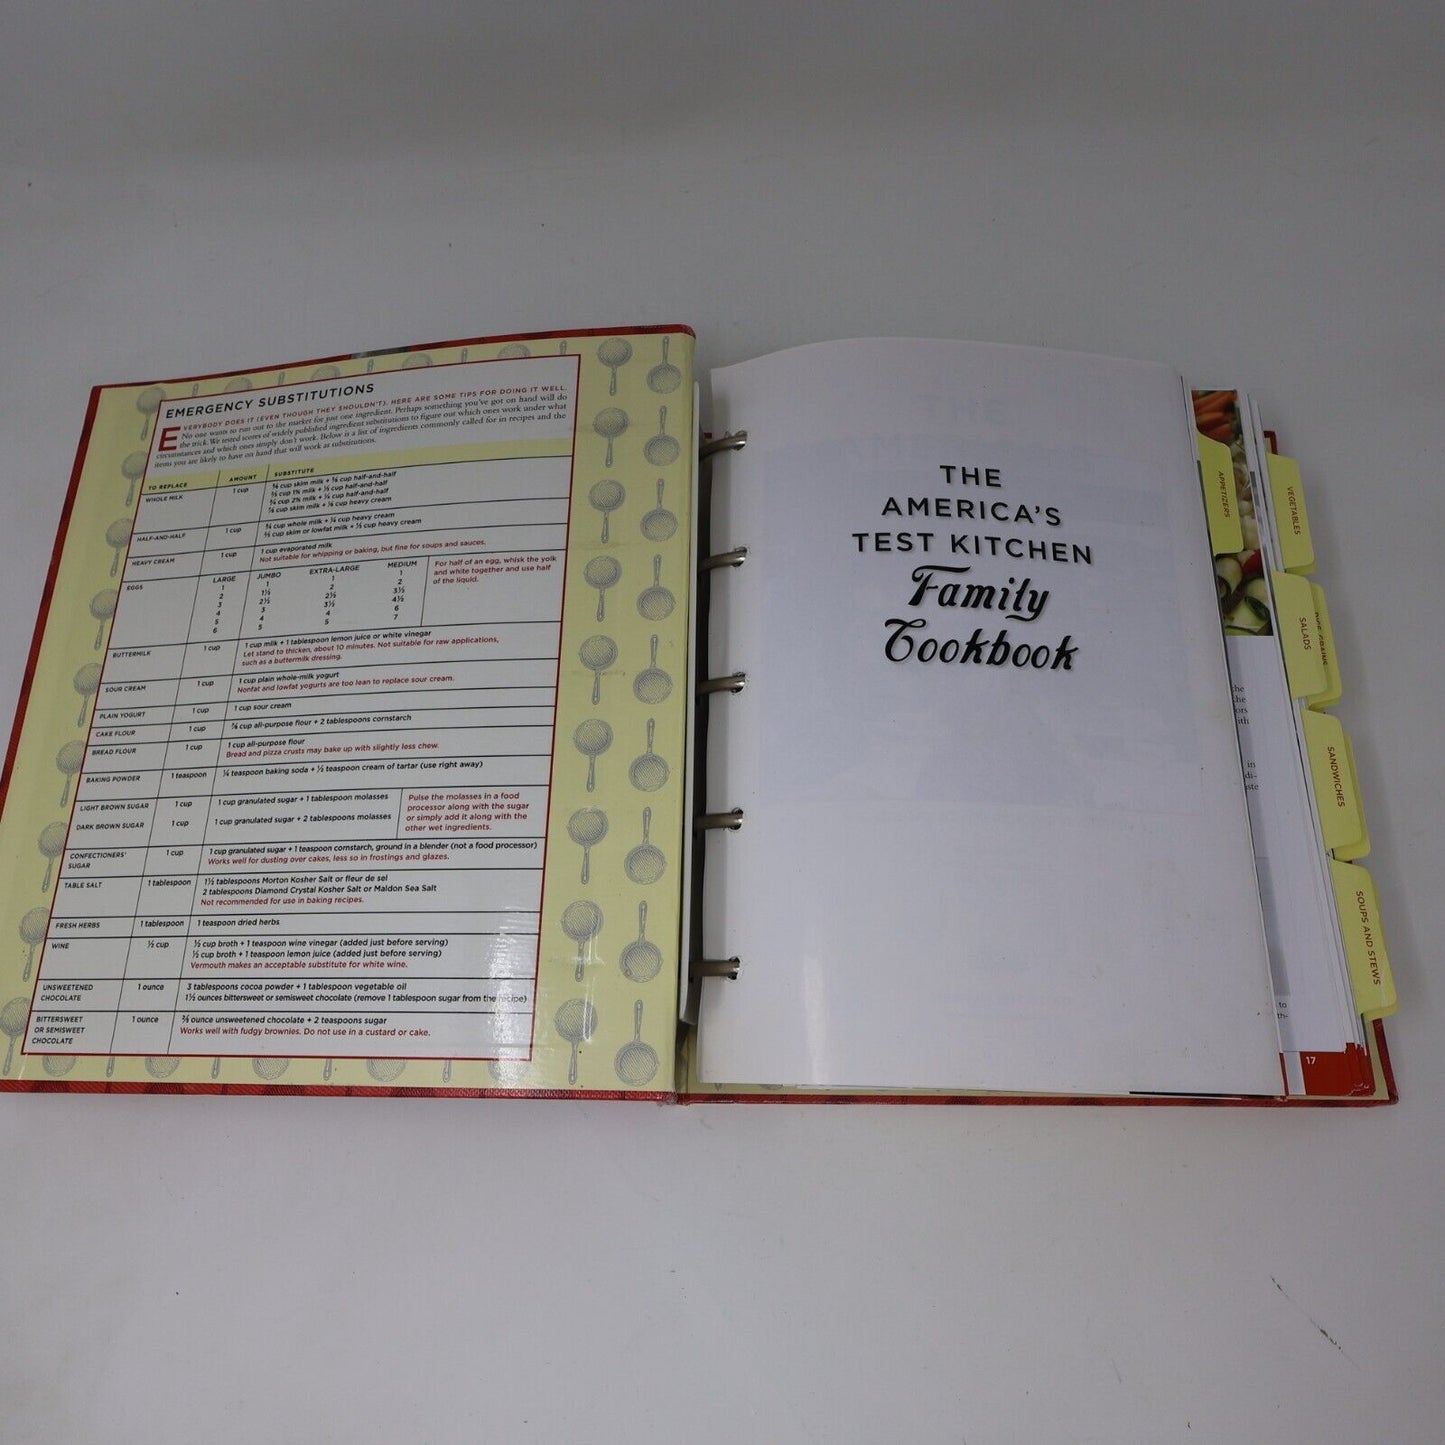 EMERGENCY SUBSTITUTIONS
EVERYBODY DOES IT (EVEN THOUGH THEY SHOULDN'T). HERE ARE SOME TIPS FOR DOING IT WELL.
No one wants to run out to the market for just one ingredient. Perhaps something you've got on hand will do
the trick. We tested scores of widely published ingredient substitutions to figure out which ones work under what
circumstances and which ones simply don't work. Below is a list of ingredients commonly called for in recipes and the
items you are likely to have on hand that will work as substitutions.
TO REPLACE AMOUNT SUBSTITUTE
WHOLE MILK 1 cup
cup skim milk + cup half-and-half
cup 1% milk + cup half-and-half
¾ cup 2% milk + ¼ cup half-and-half
⅞ cup skim milk + ⅛ cup heavy cream
HALF-AND-HALF 1 cup
¾ cup whole milk + ¼ cup heavy cream
⅔ cup skim or lowfat milk + ⅓ cup heavy cream
HEAVY CREAM 1 cup
1 cup evaporated milk
Not suitable for whipping or baking, but fine for soups and sauces.
EGGS
LARGE JUMBO EXTRA-LARGE MEDIUM
1 1 1 1
2 1½ 2 2
3 2½ 2½ 3½
4 3 3½ 4½
5 4 4 6
6 5 5 7
For half of an egg, whisk the yolk
and white together and use half
of the liquid.
BUTTERMILK 1 cup
1 cup milk + 1 tablespoon lemon juice or white vinegar
Let stand to thicken, about 10 minutes. Not suitable for raw applications,
such as a buttermilk dressing.
SOUR CREAM 1 cup
1 cup plain whole-milk yogurt
Nonfat and lowfat yogurts are too lean to replace sour cream.
PLAIN YOGURT 1 cup 1 cup sour cream
CAKE FLOUR 1 cup ⅞ cup all-purpose flour + 2 tablespoons cornstarch
BREAD FLOUR 1 cup
1 cup all-purpose flour
Bread and pizza crusts may bake up with slightly less chew.
BAKING POWDER 1 teaspoon ¼ teaspoon baking soda + ½ teaspoon cream of tartar (use right away)
LIGHT BROWN SUGAR 1 cup 1 cup granulated sugar + 1 tablespoon molasses
DARK BROWN SUGAR 1 cup 1 cup granulated sugar + 2 tablespoons molasses
Pulse the molasses in a food
processor along with the sugar
or simply add it along with the
other wet ingredients.
CONFECTIONERS'
SUGAR
1 cup
1 cup granulated sugar + 1 teaspoon cornstarch, ground in a blender (not a food processor)
Works well for dusting over cakes, less so in frostings and glazes.
TABLE SALT 1 tablespoon
1½ tablespoons Morton Kosher Salt or fleur de sel
2 tablespoons Diamond Crystal Kosher Salt or Maldon Sea Salt
Not recommended for use in baking recipes.
FRESH HERBS 1 tablespoon 1 teaspoon dried herbs
WINE ½ cup
½ cup broth + 1 teaspoon wine vinegar (added just before serving)
½ cup broth + 1 teaspoon lemon juice (added just before serving)
Vermouth makes an acceptable substitute for white wine.
UNSWEETENED
CHOCOLATE
1 ounce
3 tablespoons cocoa powder + 1 tablespoon vegetable oil
1½ ounces bittersweet or semisweet chocolate (remove 1 tablespoon sugar from the recipe)
BITTERSWEET
OR SEMISWEET
CHOCOLATE
1 ounce
⅔ ounce unsweetened chocolate + 2 teaspoons sugar
Works well with fudgy brownies. Do not use in a custard or cake.
THE
AMERICA'S
TEST KITCHEN
Family
Cookbook
APPETIZERS
VEGETABLES
SALADS
SANDWICHES
SOUPS AND STEWS
17